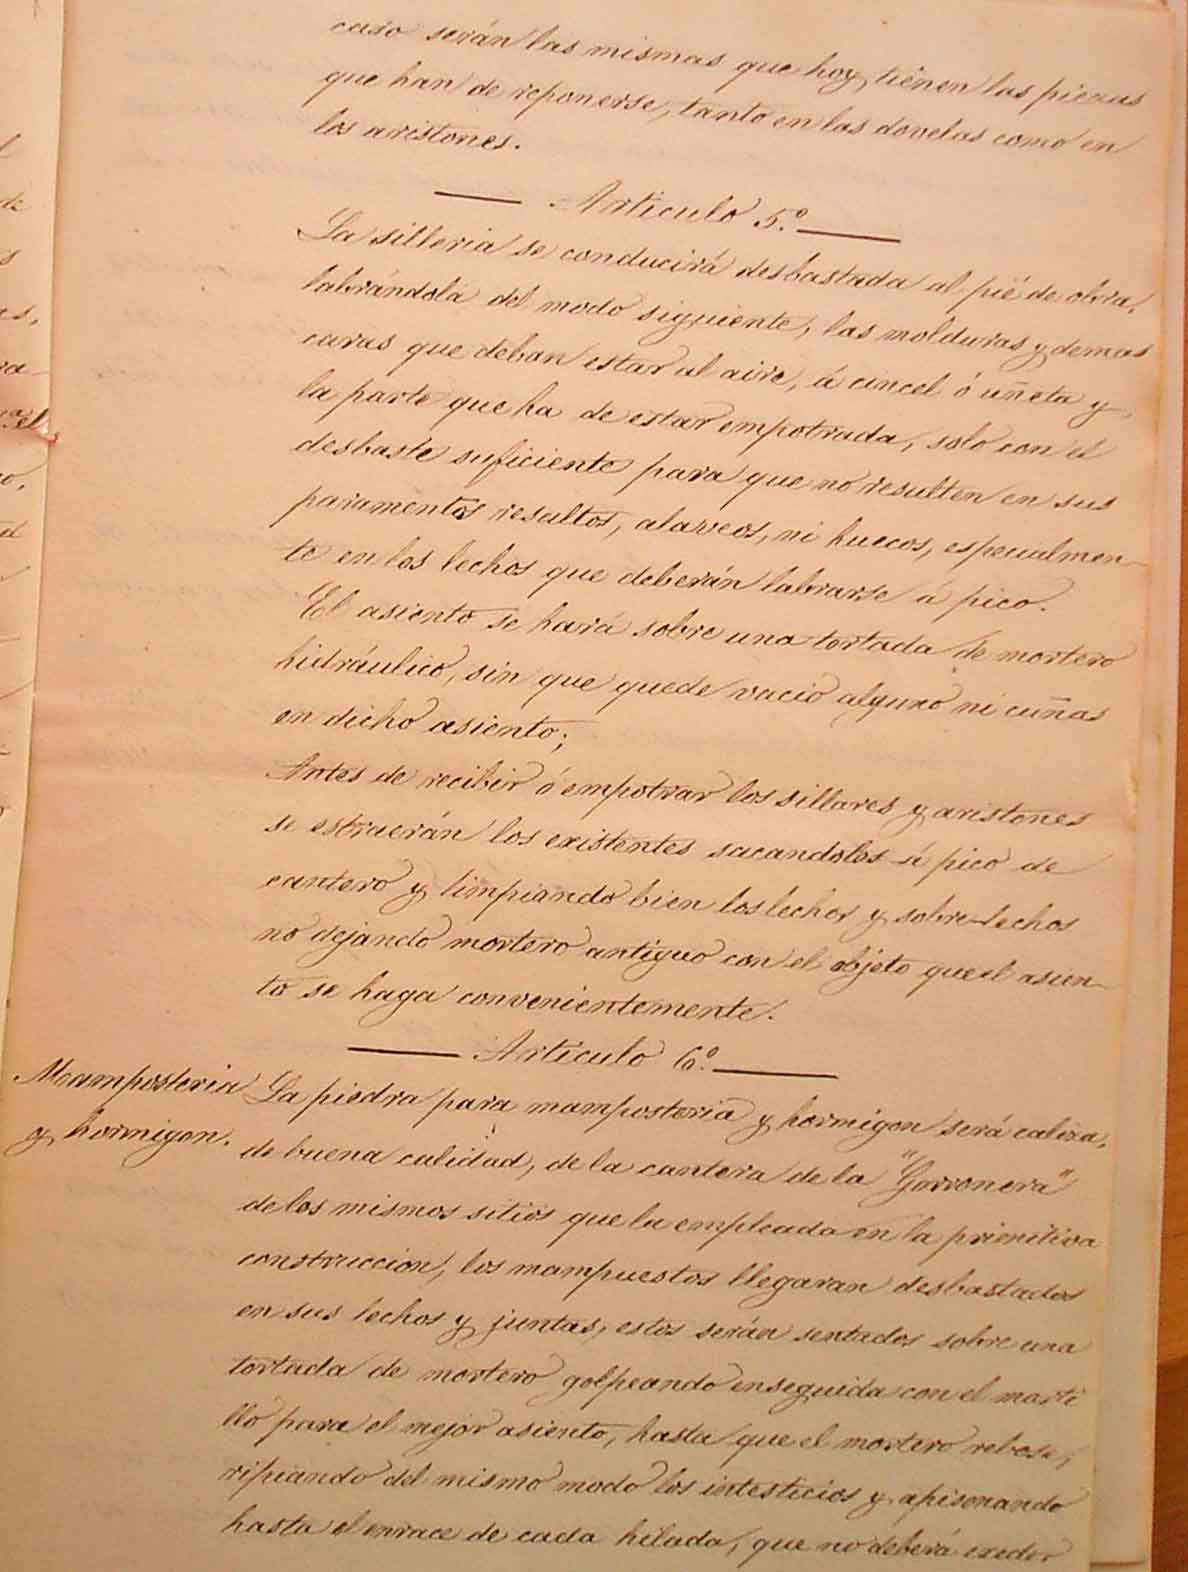 caso serán las mismas que hoy tienen las piezas
que han de reponerse, tanto en las dovelas como en
los aristones.
Articulo 5.º
La silleria se conducirá desbastada al pié de obra,
labrándola del modo siguiente, las molduras y demas
caras que deban estar al aire, á cincel ó uñeta y
la parte que ha de estar empotrada, solo con el
desbaste suficiente para que no resulten en sus
paramentos resaltos, alaveos, ni huecos, especialmen-
te en los lechos que deberán labrarse á pico.
El asiento se hará sobre una tortada de mortero
hidráulico, sin que quede vacio alguno ni cuñas
en dicho asiento;
Antes de recibir ó empotrar los sillares y aristones
se estraerán los existentes sacandoles á pico de
cantero y limpiando bien los lechos y sobre-lechos
no dejando mortero antiguo con el objeto que el asien-
to se haga convenientemente.
Articulo 6.º
Mamposteria
y hormigon.
La piedra para mamposteria y hormigon será caliza,
de buena calidad, de la cantera de la "Garronera"
de los mismos sitios que la empleada en la primitiva
construccion, los mampuestos llegaran desbastados
en sus lechos y juntas, estos serán sentados sobre una
tortada de mortero golpeando enseguida con el marti
llo para el mejor asiento, hasta que el mortero rebose,
ripiando del mismo modo los intesticios y apisonando
hasta el enrace de cada hilada, que no deberá exeder